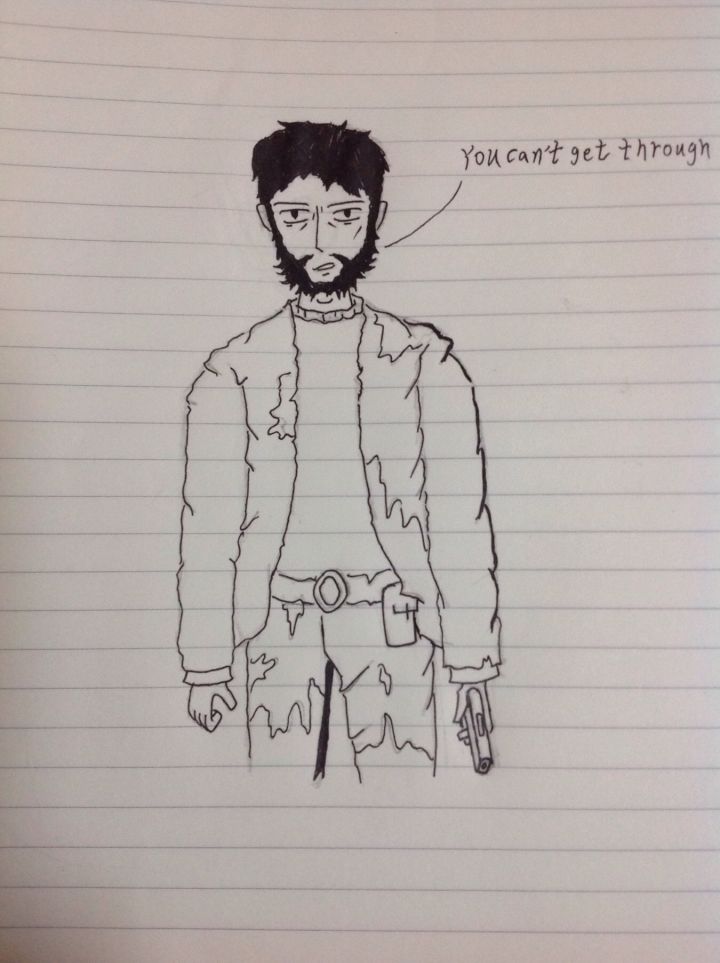 You can't get through